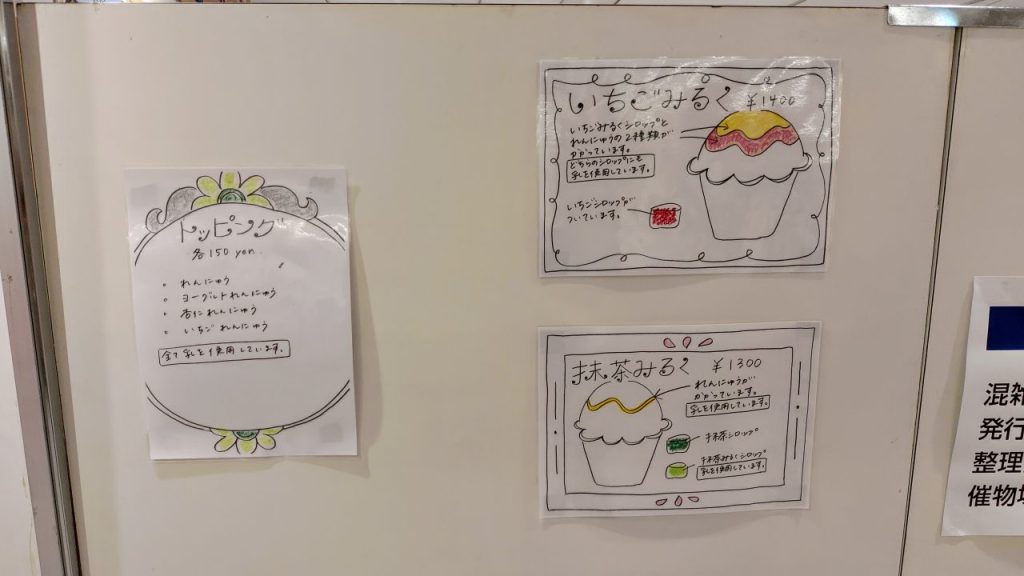 トッピング
各150 yen.
・ れんにゅう
・ ヨーグルトれんにゅう
・ 杏仁れんにゅう
・ いちごれんにゅう
全て乳を使用しています。
いちごみるく ¥1400
いちごみるくシロップと
れんにゅうの2種類が
かかっています。
どちらのシロップにも
乳を使用しています。
いちごシロップが
ついています。
抹茶みるく ¥1300
れんにゅうが
かかっています。
乳を使用しています。
抹茶シロップ
抹茶みるくシロップ
乳を使用しています。
混雑
発行
整理
催物場